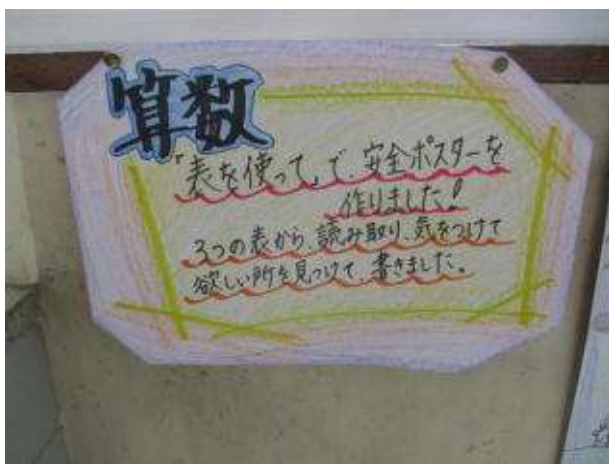 算数
「表を使って」で、安全ポスターを
作りました!
3つの表から、読み取り、気をつけて
欲しい所を見つけて、書きました。